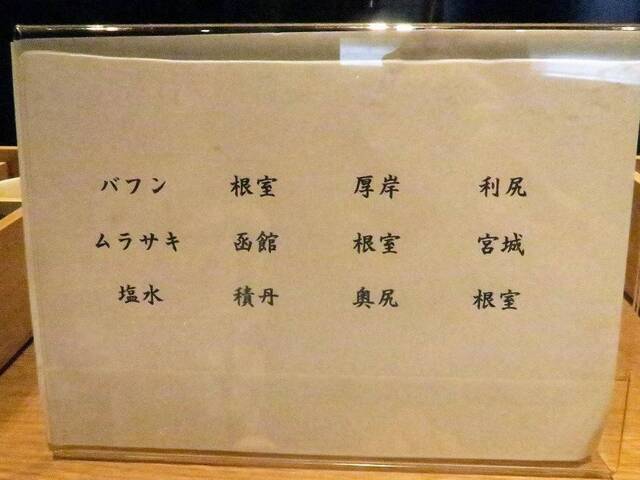 バフン 根室 厚岸 利尻
ムラサキ 函館 根室 宮城
塩水 積丹 奥尻 根室